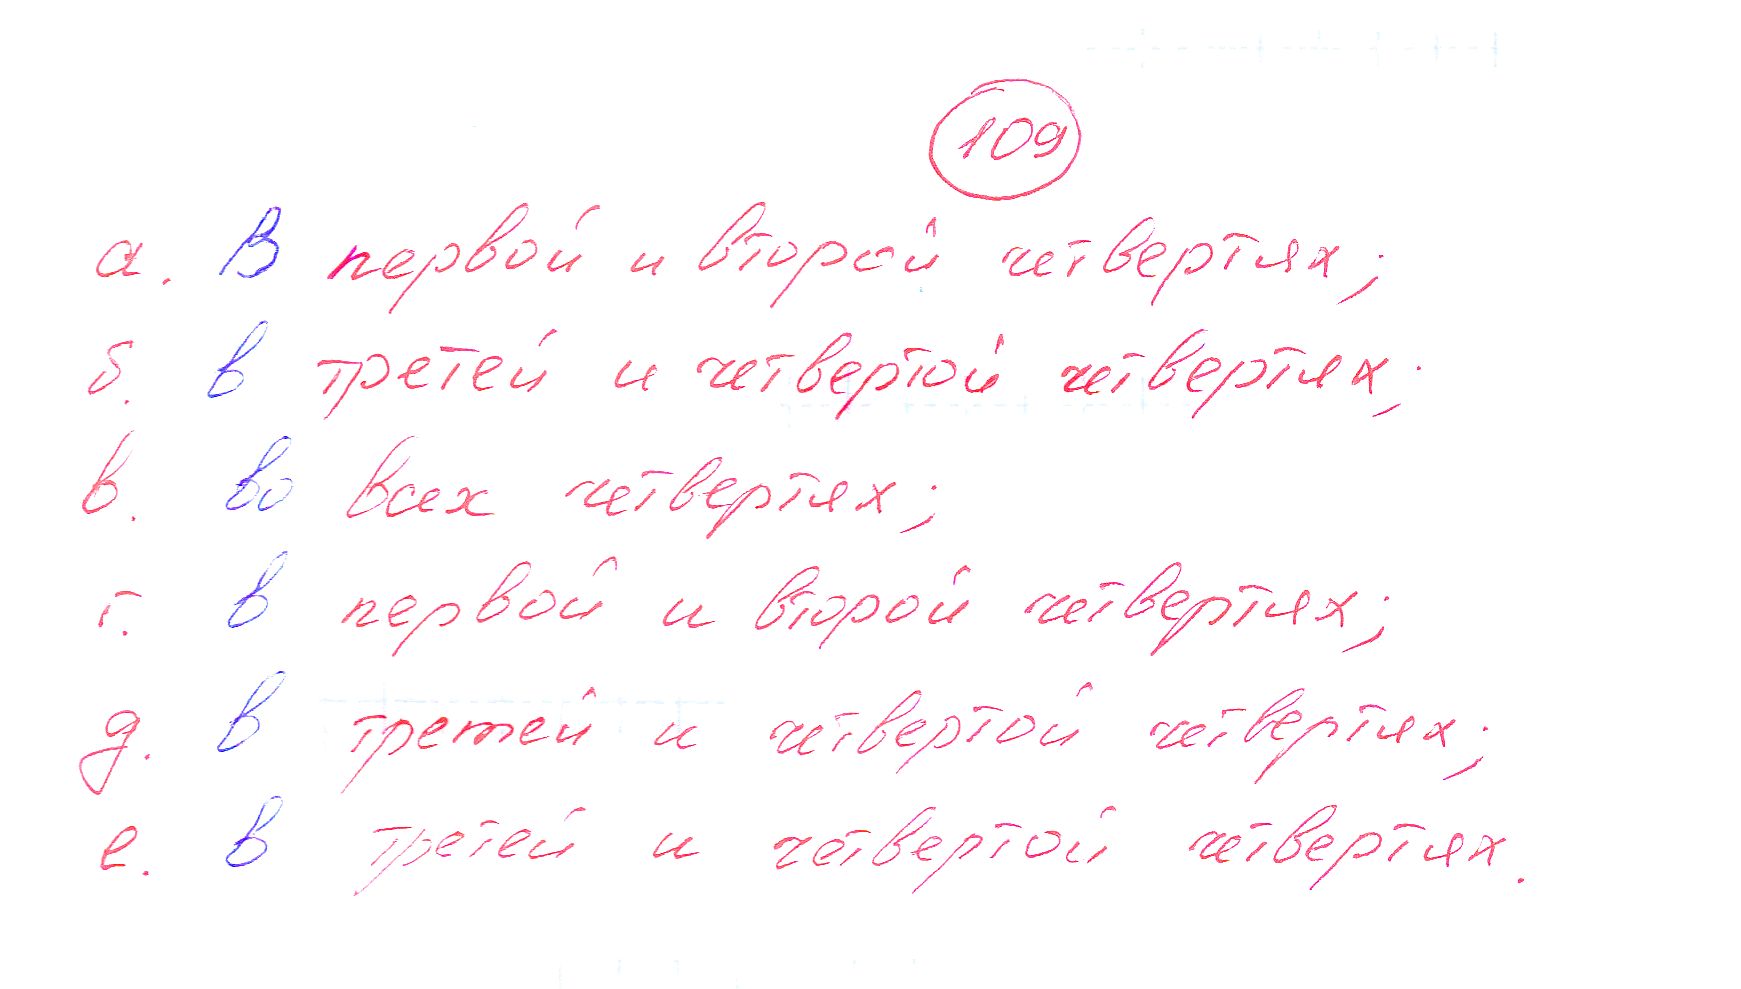 109
а. В первой и второй четвертях;
б. в третей и четвертой четвертях;
в. во всех четвертях;
г. в первой и второй четвертях;
д. в третей и четвертой четвертях;
е. в третей и четвертой четвертях.